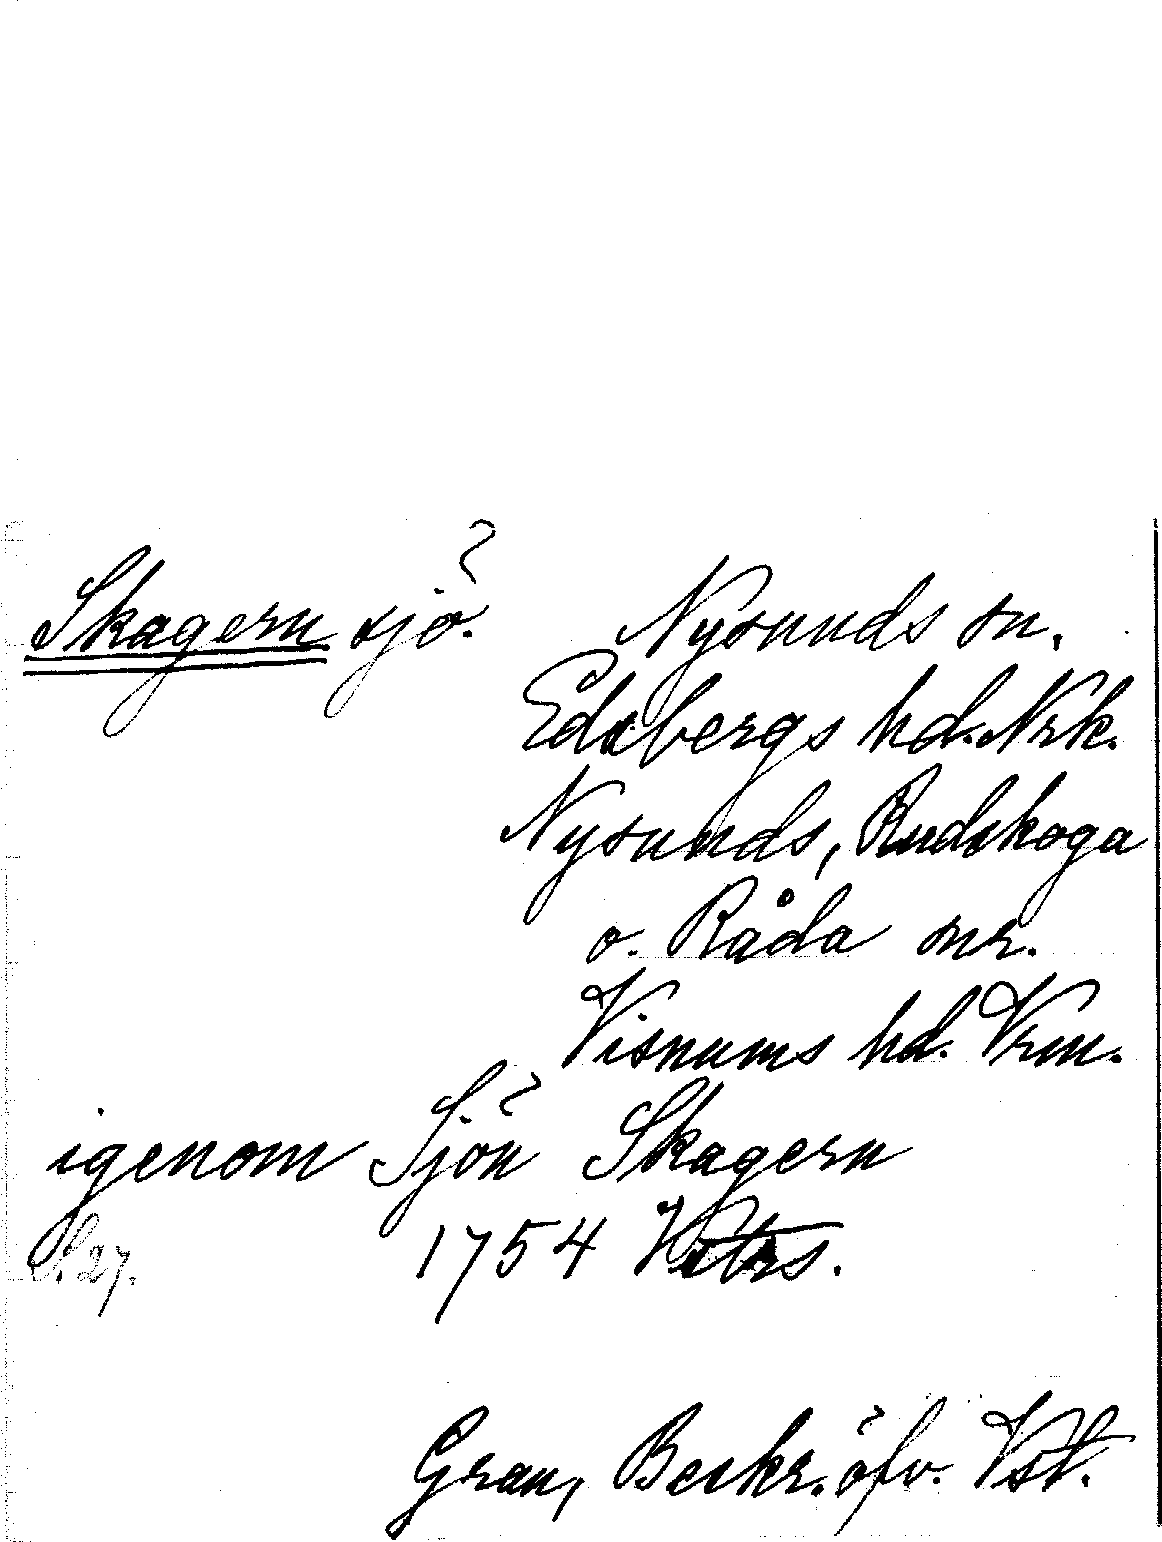 Skagern sjö. Nysunds sn.
Edsbergs hd. Nrk.
Nysunds, Rudskoga
o. Råda snr.
Visnums hd. Vrm.
igenom Sjön Skagern
S. 27. 1754 Vstrs.
Grau, Beskr. öfv. Vst.